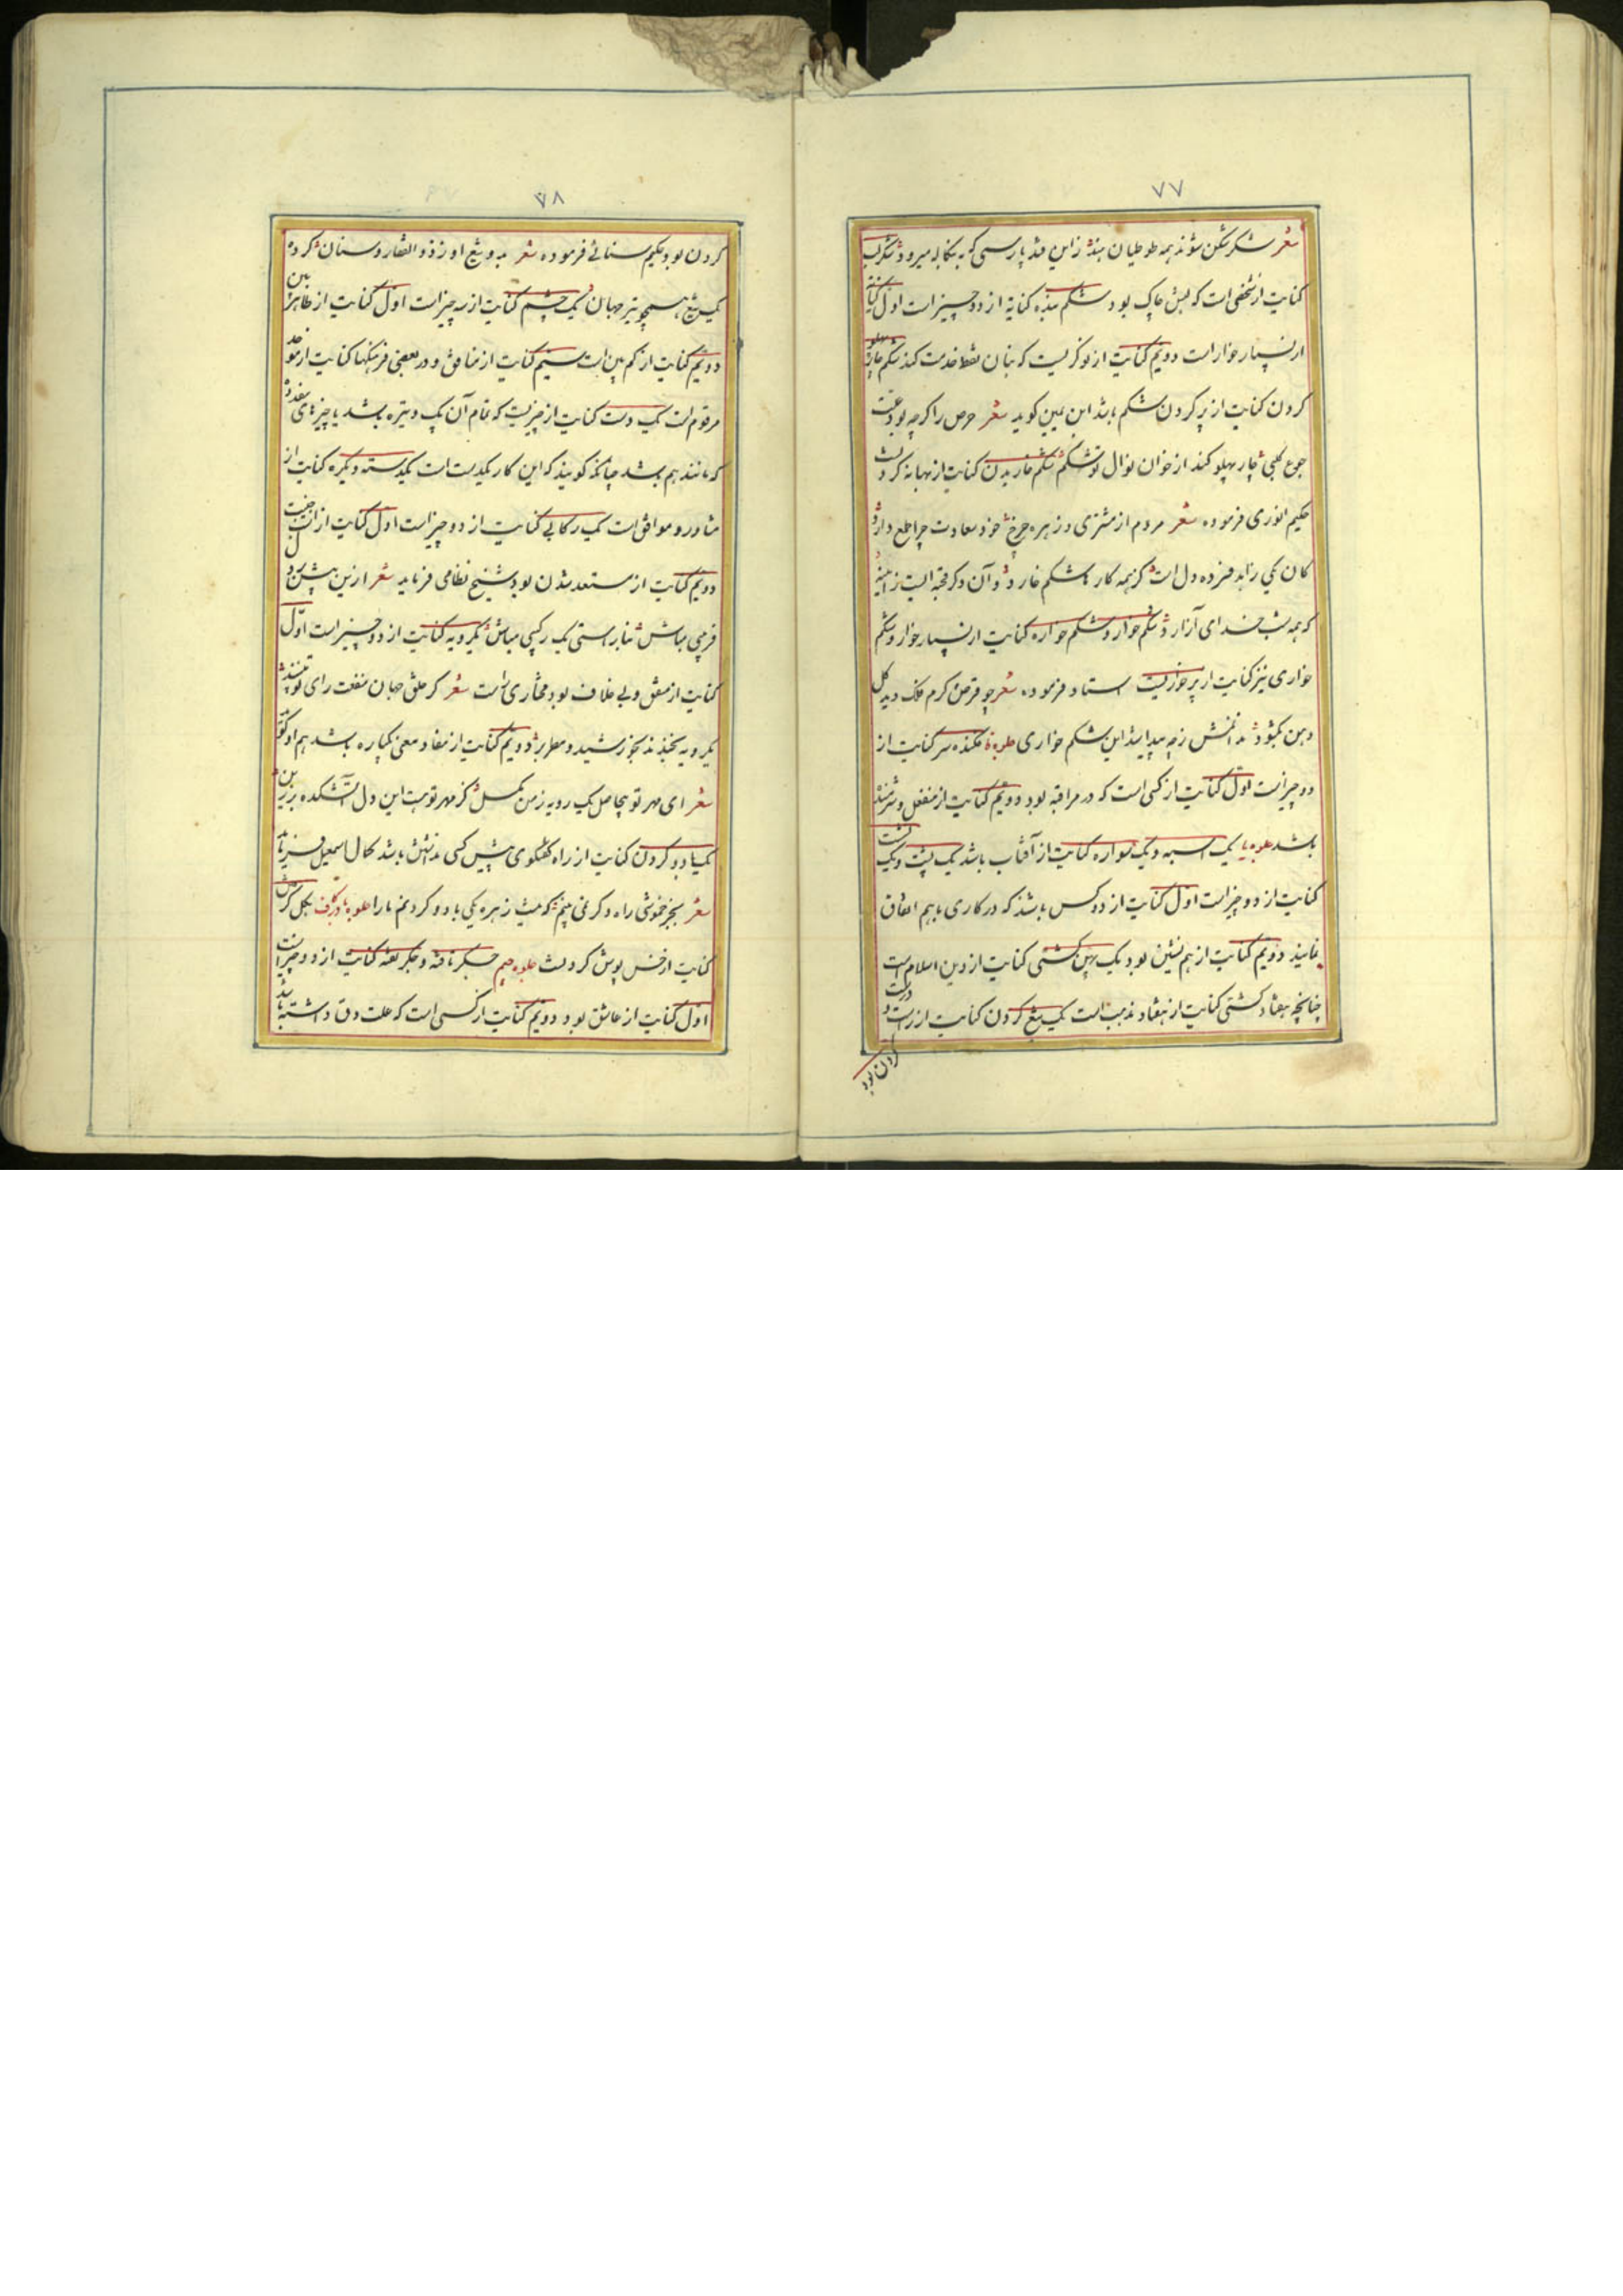 ۷۷
شعر شکر شکن شوند همه طوطیان هند زاین قند پارسی که به بنگاله میرود شکر لب
کنایت از شخصی است که لبش چاک بود شکم بنده کنایة از دو چیز است اول کنایة
از بسیار خوار است دویم کنایت از نوکریست که بنان فقط خدمت کند شکم چار پهلو
کردن کنایت از پر کردن شکم باشد ابن یمین کوید شعر حرص را کرچه بود علت
جوع کلبی چار پهلو کند از خوان نوال تو شکم شکم خاریدن کنایت از بهانه کردنست
حکیم انوری فرموده شعر مردم از مشتری و زهره چرخ خود سعادت چرا طمع دارد
کان یکی زاهد فسرده دل است کز همه کار شکم خارد وآن دکر قحبه ایست
که همه شب خدای آزارد شکم خوار و شکم خواره کنایت از بسیار خوار و شکم
خواری نیز کنایت از پر خوریست استاد فرموده شعر چو قرص کرم فلک دید کل
دهن بکشود ندانمش زچه پیدا شد این شکم خواری جلوه فکنده سر کنایت از
دو چیز است اول کنایت از کسی است که در مراقبه بود دویم کنایت از منفعل و شرمنده
باشد جلوه یا یک اسبه و یک سواره کنایت از آفتاب باشد یک پشت و یک
کنایت از دو چیز است اول کنایت از دو کس باشد که در کاری باهم اتفاق
نمایند دویم کنایت از هم نشین بود یک کشتی کنایت از دین اسلام است
چنانچه هفتاد کشتی کنایت از هفتاد مذهب است یک تیغ کردن کنایت از راست و درست
کردن بود
۷۸
کردن بود حکیم سنائے فرموده شعر بدو تیغ او ز ذو الفقار و سنان کرده
یک تیغ همچو تیر جهان یک چشم کنایت از سه چیز است اول کنایت از ظاهر بین
دویم کنایت از کم بین است سیم کنایت از منافق و در بعضی فرهنکها کنایت از موحد
مرقوم است یک دست کنایت از چیزیست که تمام آن یک وتیره باشد یا چیزهای متعدد
که مانند هم باشد چنانکه کویند که این کار یکدست است یکدسته و یکره کنایت از
مشاور و موافق است یک رکابی کنایت از دو چیز است اول کنایت از اسب جنیبت
دویم کنایت از مستعد شدن بود شیخ نظامی فرماید شعر ازین پیش
فرمی مباش بنا راستی یک رکیبی مباش یکرویه کنایت از دو چیز است اول
کنایت از متفق و بے خلاف بود مختاری راست شعر کر خلق جهان منفعت رای تو
یکرویه بخندند بخورشید و مطر بر دویم کنایت از مفاد معنی یکباره باشد هم او کوید
شعر ای مهر تو بیحاصل یک رویه ز من بکسل کز مهر تو هست این دل آتشکده برزین
یک یا دو کردن کنایت از راه کفتکوی پیش کسی نداشتن باشد کمال اسمعیل فرماید
شعر بجز خموشی راه دکر نمی بینم که نیست زهره یکی یا دو کردنم یارا جلوه یا در کاف بکل کرفتن
کنایت از خس پوش کردنست جلوه جیم جکر تافته و جکر تفته کنایت از دو چیز است
اول کنایت از عاشق بود دویم کنایت از کسی است که علت دق داشته باشد